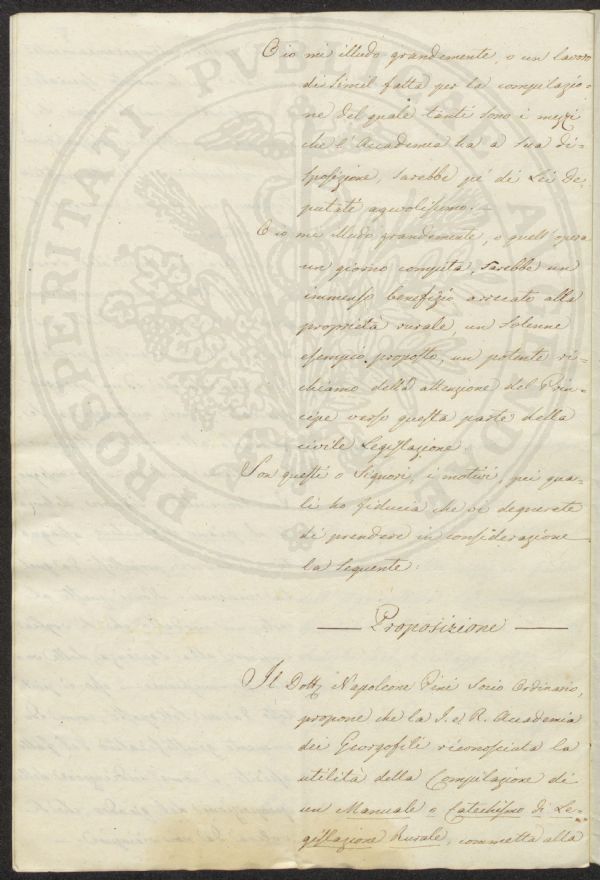 O io mi illudo grandemente, o un lavoro
di simil fatta per la compilazio=
ne del quale tanti sono i mezzi
che l'Accademia ha a sua di=
sposizione, sarebbe pe' di Lei De=
putati agevolissimo.
O io mi illudo grandemente, o quell'opera
un giorno compita, sarebbe un
immenso benefizio arrecato alla
proprietà rurale, un solenne
esempio proposto, un potente ri=
chiamo della attenzione del Prin=
cipe verso questa parte della
civile Legislazione.
Son questi o Signori, i motivi, pei qua=
li ho fiducia che vi degnerete
di prendere in considerazione
la seguente:
— Proposizione —
Il Dott. Napoleone Pini Socio Ordinario,
propone che la I. e R. Accademia
dei Georgofili riconosciuta la
utilità della Compilazione di
un Manuale o Catechismo di Le=
gislazione Rurale, commetta alla
PROSPERITATI PVBLICAE